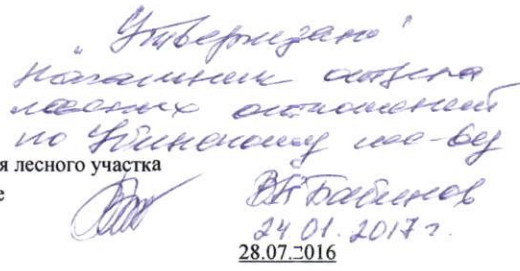 "Утверждаю"
Начальник отдела
лесных отношений
по Убинскому лес-ву
я лесного участка
е
В.Н. Бабинов
24.01.2017 г.
28.07.2016